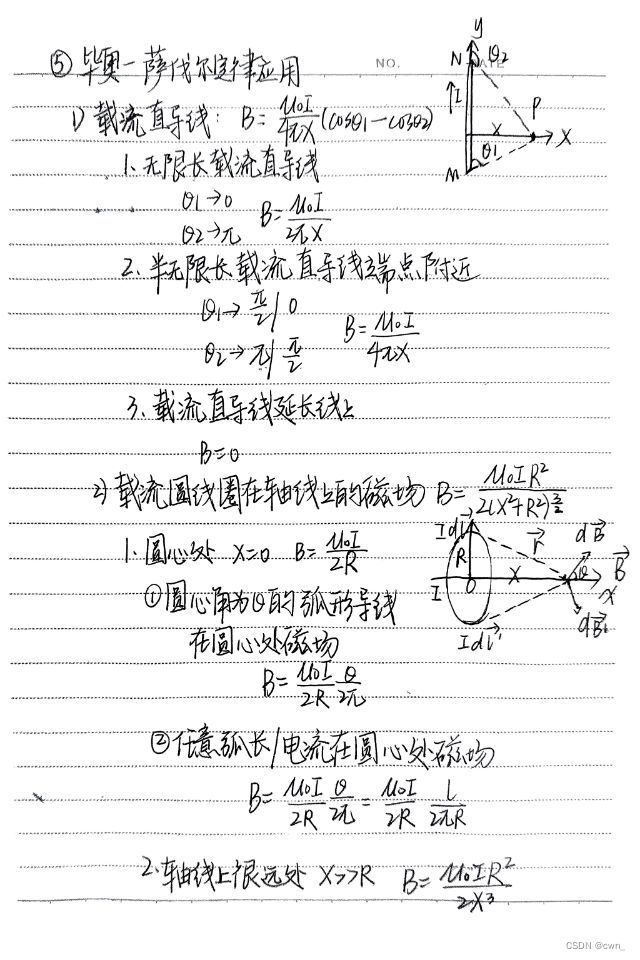 ⑤ 毕奥-萨伐尔定律应用
NO.
DATE
1) 载流直导线: B=μ₀I/4πx (cosθ1-cosθ2)
y
N
θ2
I
P
x
X
θ1
M
1. 无限长载流直导线
θ1→0
θ2→π B=μ₀I/2πx
2. 半无限长载流直导线端点附近
θ1→π/2 | 0
θ2→π | π/2 B=μ₀I/4πx
3. 载流直导线延长线上
B=0
2) 载流圆线圈在轴线上的磁场 B=μ₀IR²/2(x²+R²)^(3/2)
1. 圆心处 x=0 B=μ₀I/2R
Idl
R
I
O
r
x
dB
θ
B
x
dB'
Idl'
①圆心角为θ的弧形导线
在圆心处磁场
B=μ₀I/2R θ/2π
②任意弧长l电流在圆心处磁场
B=μ₀I/2R θ/2π = μ₀I/2R l/2πR
2. 轴线上很远处 x>>R B=μ₀IR²/2x³
CSDN @cwn_